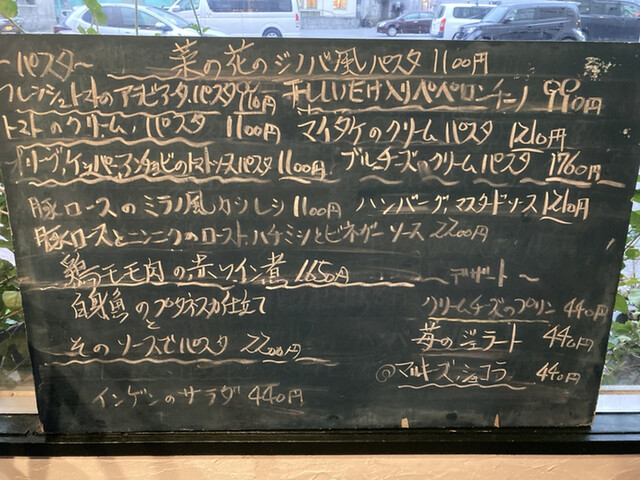 ～パスタ～ 菜の花のジノバ風パスタ 1100円
フレッシュトマトのアラビアータパスタ 990円 干ししいたけ入りペペロンチーノ 990円
トマトのクリームパスタ 1100円 マイタケのクリームパスタ 1210円
オリーブ、ケッパー、アンチョビのトマトソースパスタ 1100円 ブルーチーズのクリームパスタ 1760円
豚ロースのミラノ風カツレツ 1100円 ハンバーグ、マスタードソース 1210円
豚ロースとニンニクのロースト、ハチミツとビネガーソース 2200円
鶏モモ肉の赤ワイン煮 1650円 デザート～
白身魚のプッタネスカ仕立て クリームチーズのプリン 440円
と 苺のジェラート 440円
そのソースでパスタ 2200円
マルキーズショコラ 440円
インゲンのサラダ 440円